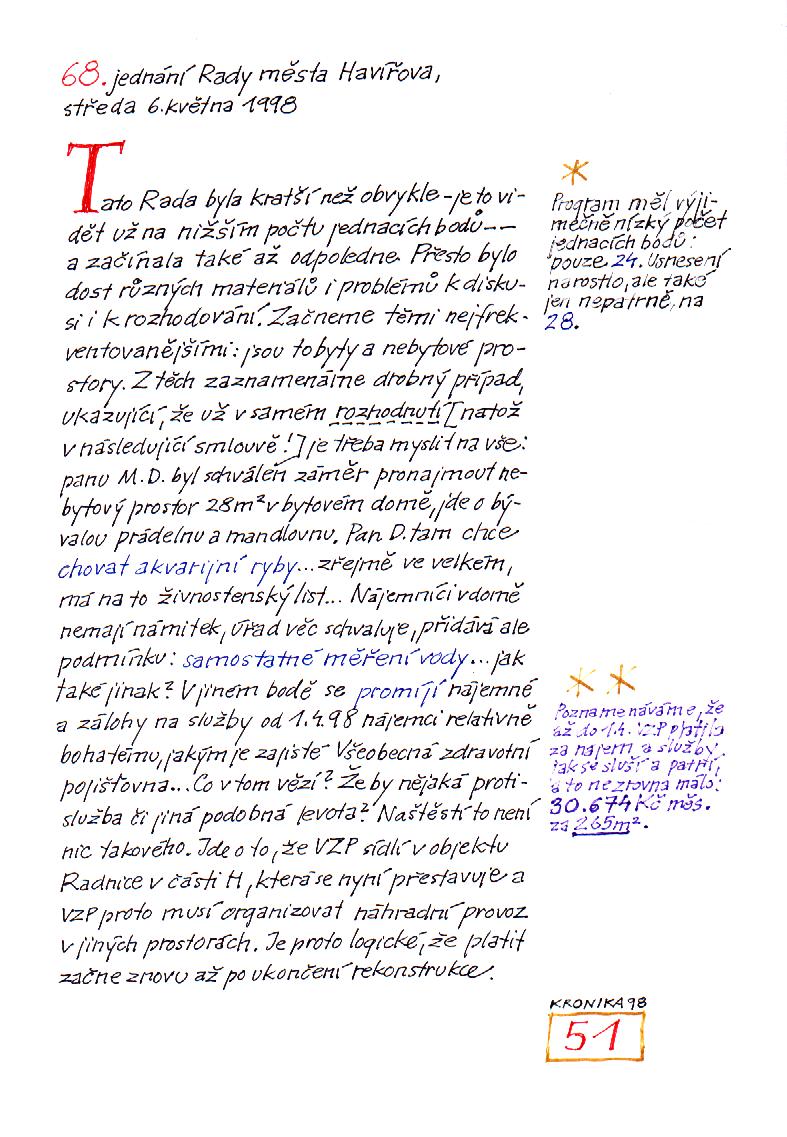 68. jednání Rady města Havířova,
středa 6. května 1998
Tato Rada byla kratší než obvykle - je to vi-
dět už na nižším počtu jednacích bodů --
a začínala také až odpoledne. Přesto bylo
dost různých materiálů i problémů k disku-
si i k rozhodování. Začneme těmi nejfrek-
ventovanějšími: jsou to byty a nebytové pro-
story. Z těch zaznamenáme drobný případ,
ukazující, že už v samém rozhodnutí [natož
v následující smlouvě!] je třeba myslit na vše:
panu M.D. byl schválen záměr pronajmout ne-
bytový prostor 28m² v bytovém domě, jde o bý-
valou prádelnu a mandlovnu. Pan D. tam chce
chovat akvarijní ryby... zřejmě ve velkém,
má na to živnostenský list... Nájemníci v domě
nemají námitek, úřad věc schvaluje, přidává ale
podmínku: samostatné měření vody... jak
také jinak? V jiném bodě se promíjí nájemné
a zálohy na služby od 1.4.98 nájemci relativně
bohatému, jakým je zajisté Všeobecná zdravotní
pojišťovna... Co v tom vězí? Že by nějaká proti-
služba či jiná podobná levota? Naštěstí to není
nic takového. Jde o to, že VZP sídlí v objektu
Radnice v části H, která se nyní přestavuje a
VZP proto musí organizovat náhradní provoz
v jiných prostorách. Je proto logické, že platit
začne znovu až po ukončení rekonstrukce.
*
Program měl výji-
mečně nízký počet
jednacích bodů:
pouze 24. Usnesení
narostlo, ale také
jen nepatrně, na
28.
* *
Poznamenáváme, že
až do 1.4. VZP platila
za nájem a služby,
jak se sluší a patří,
a to nezrovna málo:
30.674 Kč měs.
za 265m².
KRONIKA 98
51